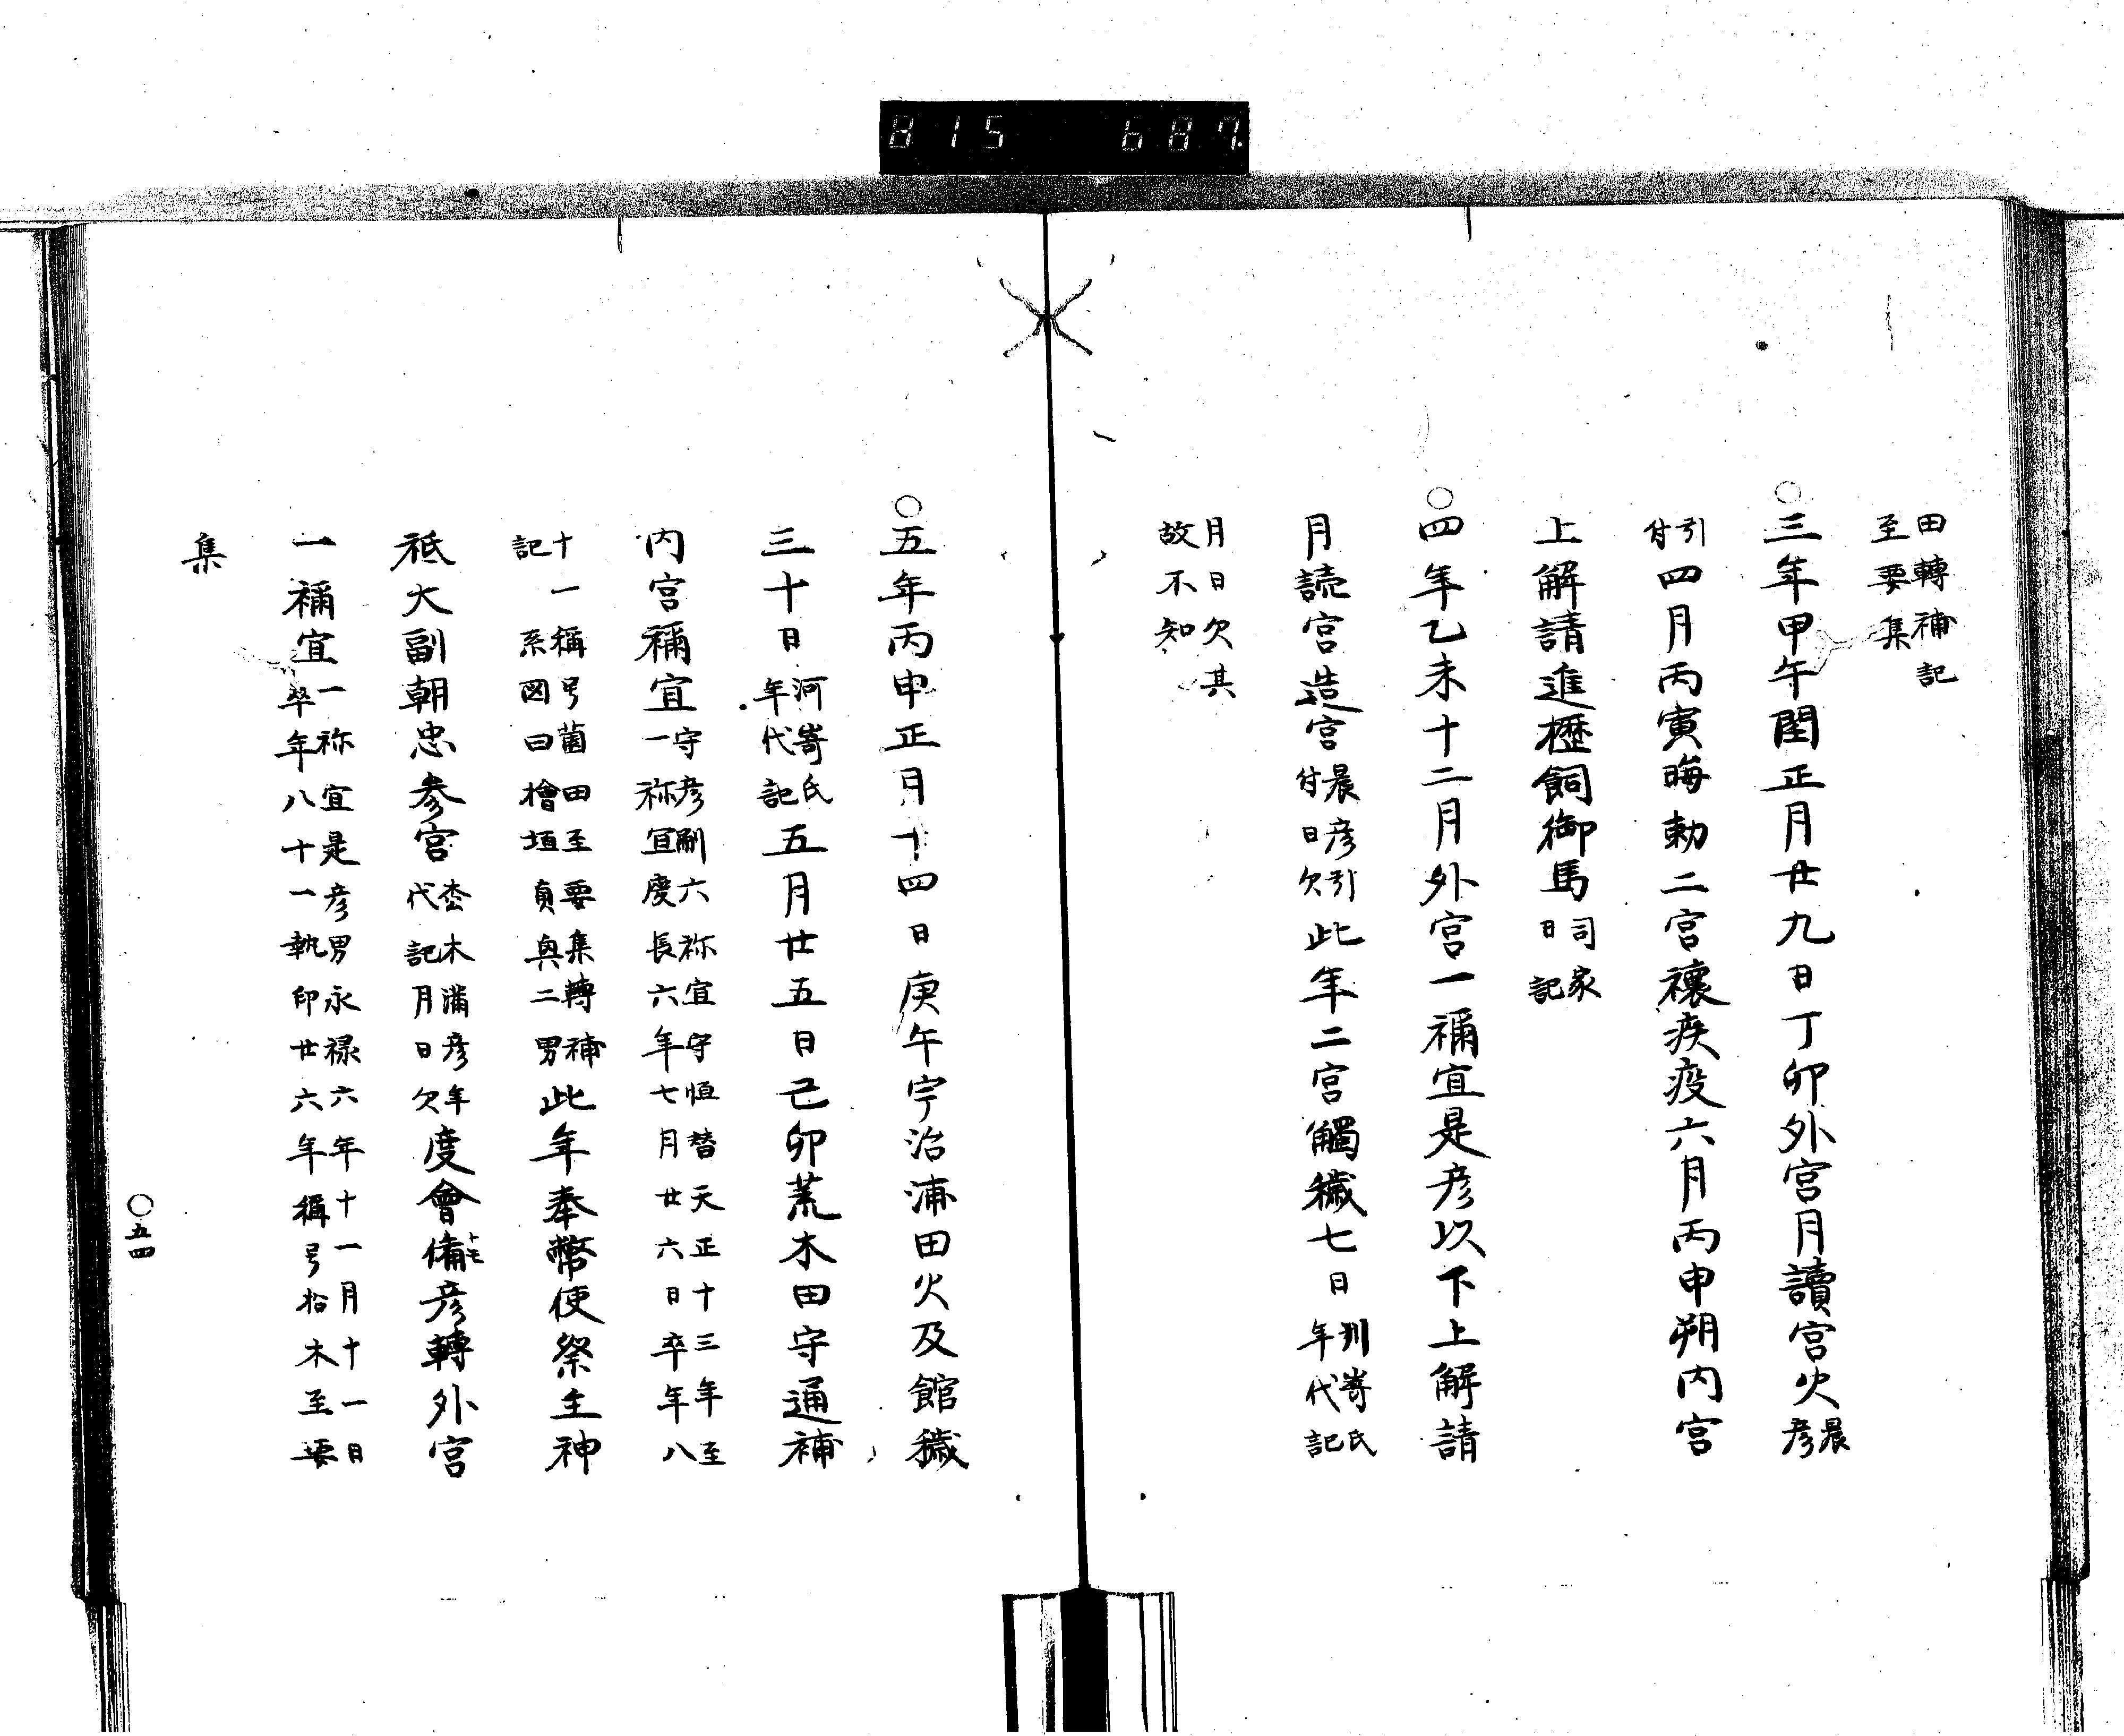 815 687.
田轉補記
至要集
○三年甲午閏正月廿九日丁卯外宮月讀宮火晨彦
引付四月丙寅晦勅二宮禳疾疫六月丙申朔内宮
上解請進櫪飼御馬司家日記
○四年乙未十二月外宮一禰宜是彦以下上解請
月読宮造宮晨彦引付日欠此年二宮觸穢七日河嵜氏年代記
月日欠其
故不知
○五年丙申正月十四日庚午宇治浦田火及館穢
三十日河嵜氏年代記五月廿五日己卯荒木田守通補
内宮禰宜守彦嗣六祢宜守恒替天正十三年至一祢宜慶長六年七月廿六日卒年八
十一稱号薗田至要集轉補記系図曰檜垣貞與二男此年奉幣使祭主神
祇大副朝忠参宮杢木満彦年代記月日欠度會備彦轉外宮
一禰宜一祢宜是彦男永禄六年十一月十一日卒年八十一執印廿六年稱号桧木至要
集
○五四